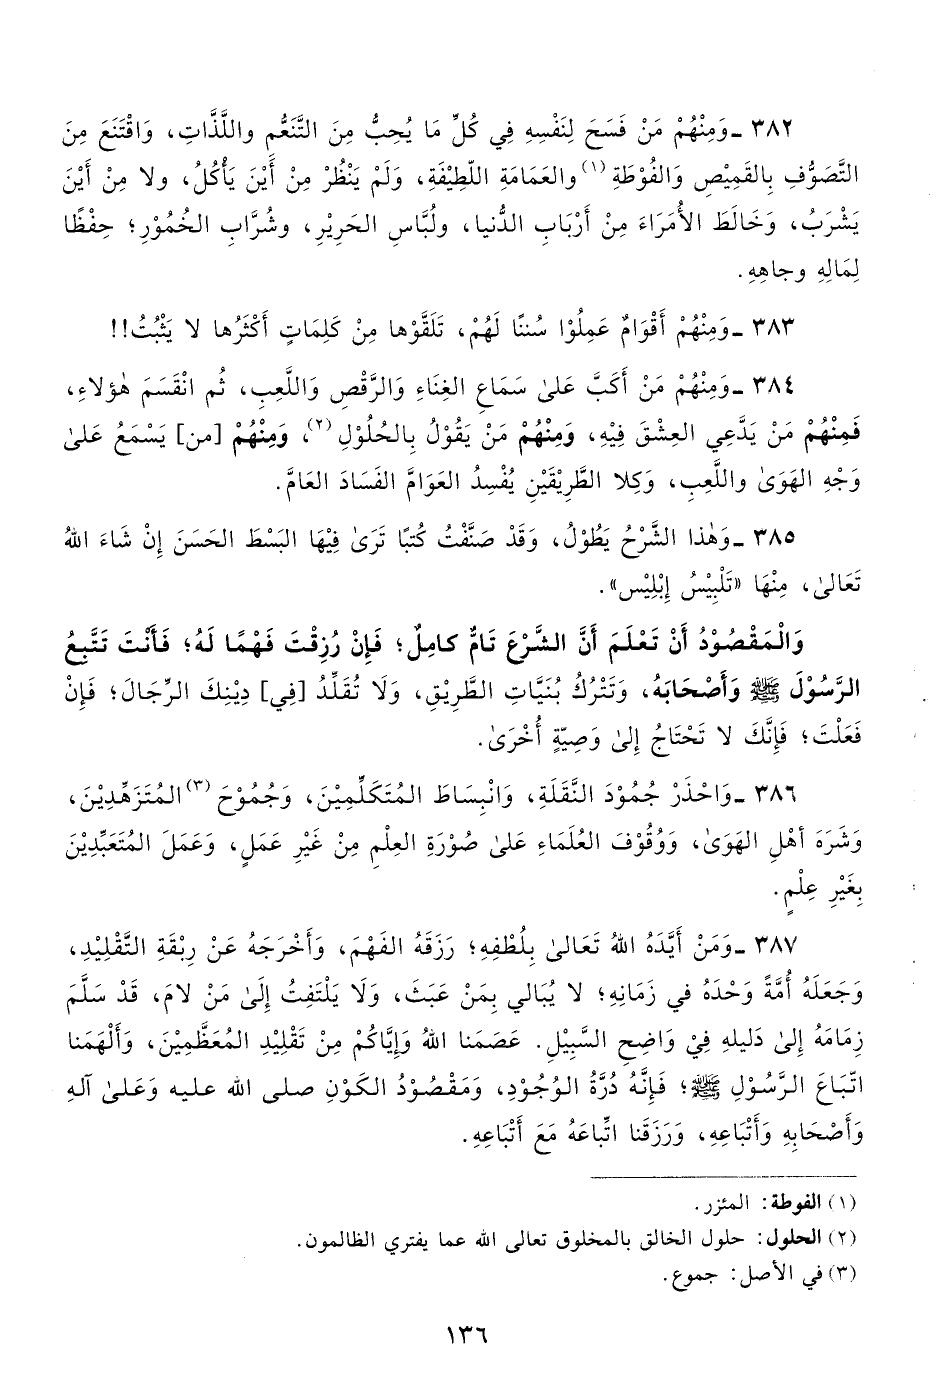 ٣٨٢ ـ وَمِنْهُمْ مَنْ فَسَحَ لِنَفْسِهِ فِي كُلِّ مَا يُحِبُّ مِنَ التَّنَعُّمِ واللَّذَّاتِ، وَاقْتَنَعَ مِنَ
التَّصَوُّفِ بِالقَمِيْصِ وَالفُوْطَةِ(١) والعَمَامَةِ اللَّطِيْفَةِ، وَلَمْ يَنْظُرْ مِنْ أَيْنَ يَأْكُلُ، ولا مِنْ أَيْنَ
يَشْرَبُ، وَخَالَطَ الأُمَرَاءَ مِنْ أَرْبَابِ الدُّنيا، ولُبَّاسِ الحَرِيْرِ، وشُرَّابِ الخُمُوْرِ؛ حِفْظًا
لِمَالِهِ وجاهِهِ.
٣٨٣ ـ وَمِنْهُمْ أَقْوَامٌ عَمِلُوْا سُننًا لَهُمْ، تَلَقَّوْها مِنْ كَلِمَاتٍ أَكْثَرُها لا يَثْبُتُ!!
٣٨٤ ـ وَمِنْهُمْ مَنْ أَكَبَّ عَلىٰ سَمَاعِ الغِنَاءِ وَالرَّقْصِ وَاللَّعِبِ، ثُم انْقَسَمَ هٰؤلاءِ،
فَمِنْهُمْ مَنْ يَدَّعِي العِشْقَ فِيْهِ، وَمِنْهُمْ مَنْ يَقُوْلُ بِالحُلُوْلِ(٢)، وَمِنْهُمْ [من] يَسْمَعُ عَلىٰ
وَجْهِ الهَوَىٰ واللَّعِبِ، وَكِلا الطَّرِيْقَيْنِ يُفْسِدُ العَوَامَّ الفَسَادَ العَامَّ.
٣٨٥ ـ وَهٰذا الشَّرْحُ يَطُوْلُ، وَقَدْ صَنَّفْتُ كُتبًا تَرَىٰ فِيْهَا البَسْطَ الحَسَنَ إِنْ شَاءَ اللهُ
تَعَالىٰ، مِنْهَا «تَلْبِيْسُ إِبْلِيْس».
وَالْمَقْصُوْدُ أَنْ تَعْلَمَ أَنَّ الشَّرْعَ تَامٌّ كامِلٌ؛ فَإِنْ رُزِقْتَ فَهْمًا لَهُ؛ فَأَنْتَ تَتَّبِعُ
الرَّسُوْلَ ﷺ وَأَصْحَابَهُ، وَتَتْرُكُ بُنَيَّاتِ الطَّرِيْقِ، وَلَا تُقَلِّدُ [فِي] دِيْنِكَ الرِّجَالَ؛ فَإِنْ
فَعَلْتَ؛ فَإِنَّكَ لا تَحْتَاجُ إِلىٰ وَصِيّةٍ أُخْرَىٰ.
٣٨٦ ـ وَاحْذَرْ جُمُوْدَ النَّقَلَةِ، وَانْبِسَاطَ المُتَكَلِّمِيْنَ، وَجُمُوْحَ(٣) المُتَزَهِّدِيْنَ،
وَشَرَهَ أهْلِ الهَوَىٰ، وَوُقُوْفَ العُلَمَاءِ عَلىٰ صُوْرَةِ العِلْمِ مِنْ غَيْرِ عَمَلٍ، وَعَمَلَ المُتَعَبِّدِيْنَ
بِغَيْرِ عِلْمٍ.
٣٨٧ ـ وَمَنْ أَيَّدَهُ اللهُ تَعَالىٰ بِلُطْفِهِ؛ رَزَقَهُ الفَهْمَ، وَأَخْرَجَهُ عَنْ رِبْقَةِ التَّقْلِيْدِ،
وَجَعَلَهُ أُمَّةً وَحْدَهُ في زَمَانِهِ؛ لا يُبَالي بِمَنْ عَبَثَ، وَلَا يَلْتَفِتُ إِلَىٰ مَنْ لامَ، قَدْ سَلَّمَ
زِمَامَهُ إِلىٰ دَلِيلهِ فِيْ وَاضِحِ السَّبِيْلِ. عَصَمَنا اللهُ وَإِيَّاكُمْ مِنْ تَقْلِيْدِ المُعَظَّمِيْنَ، وَأَلْهَمَنا
اتّبَاعَ الرَّسُوْلِ ﷺ؛ فَإِنَّهُ دُرَّةُ الوُجُوْدِ، وَمَقْصُوْدُ الكَوْنِ صلى الله عليه وَعَلىٰ آلهِ
وَأَصْحَابِهِ وَأَتْبَاعِهِ، وَرَزَقَنا اتِّباعَهُ مَعَ أَتْبَاعِهِ.
(١) الفوطة: المئزر.
(٢) الحلول: حلول الخالق بالمخلوق تعالى الله عما يفتري الظالمون.
(٣) في الأصل: جموع.
١٣٦